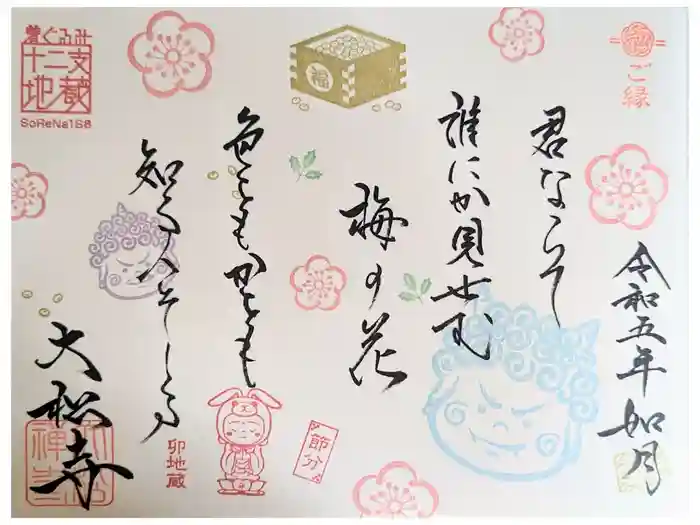 ご縁
令和五年如月
君ならで
誰にか見せむ
梅の花
色をも香をも
知る人ぞしる
大松寺
福
節分
卯地蔵
着ぐるみ
十二支
地蔵
SoReNa168